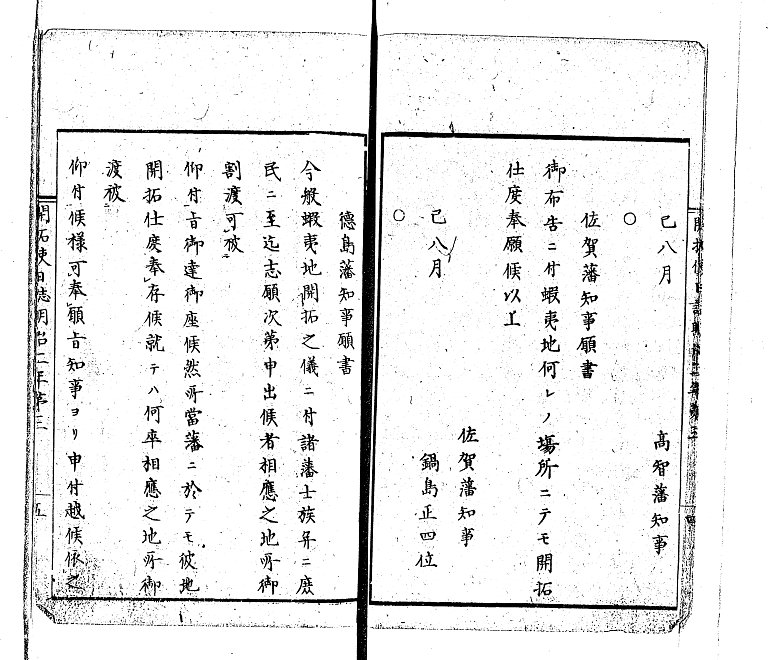 己八月
高智藩知事
○
佐賀藩知事願書
御布告ニ付蝦夷地何レノ場所ニテモ開拓
仕度奉願候以上
佐賀藩知事
己八月
鍋島正四位
○
徳島藩知事願書
今般蝦夷地開拓之儀ニ付諸藩士族并ニ庶
民ニ至迄志願次第申出候者相應之地所御
割渡可被
仰付旨御達御座候然所當藩ニ於テモ彼地
開拓仕度奉存候就テハ何卒相應之地所御
渡被
仰付候様可奉願旨知事ヨリ申付越候依之
開拓使日誌明治二年第三
五